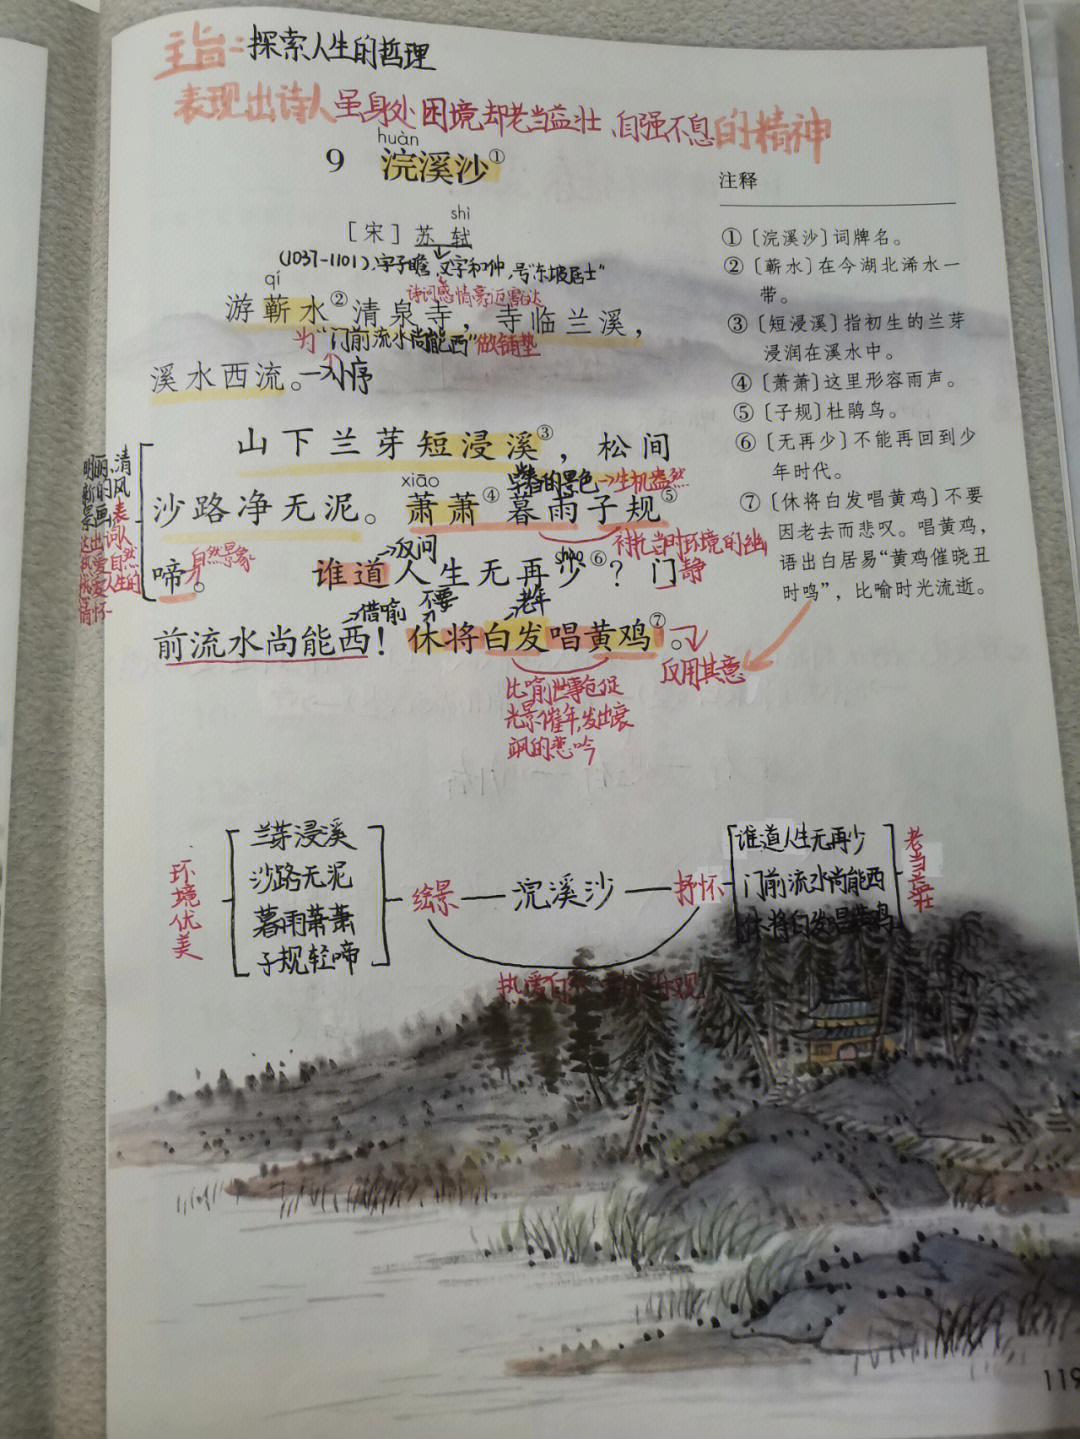 主旨：探索人生的哲理
表现出诗人虽身处困境却老当益壮、自强不息的精神
huàn
9 浣溪沙①
shì
［宋］苏轼
(1037-1101),字子瞻,又字和仲,号"东坡居士"
诗词感情豪迈豁达
qí
游蕲水②清泉寺，寺临兰溪，
为"门前流水尚能西"做铺垫
溪水西流。→小序
山下兰芽短浸溪③，松间
的景色→生机盎然
xiāo
沙路净无泥。萧萧④暮雨子规⑤
衬托当时环境的幽静
→反问
shào
啼。自然景象
谁道人生无再少⑥？门
→借喻
不要
老年
前流水尚能西！休将白发唱黄鸡⑦。
反用其意
比喻世事匆促
光景催年,发出衰
飒的悲吟
明丽、清
新的风
景画,表
达出词人
热爱自然
人生的
情怀
注释
①〔浣溪沙〕词牌名。
②〔蕲水〕在今湖北浠水一
带。
③〔短浸溪〕指初生的兰芽
浸润在溪水中。
④〔萧萧〕这里形容雨声。
⑤〔子规〕杜鹃鸟。
⑥〔无再少〕不能再回到少
年时代。
⑦〔休将白发唱黄鸡〕不要
因老去而悲叹。唱黄鸡，
语出白居易“黄鸡催晓丑
时鸣”，比喻时光流逝。
环境优美
兰芽浸溪
沙路无泥
暮雨萧萧
子规轻啼
绘景—浣溪沙—抒怀
谁道人生无再少
门前流水尚能西
休将白发唱黄鸡
老当益壮
热爱自
乐观
119